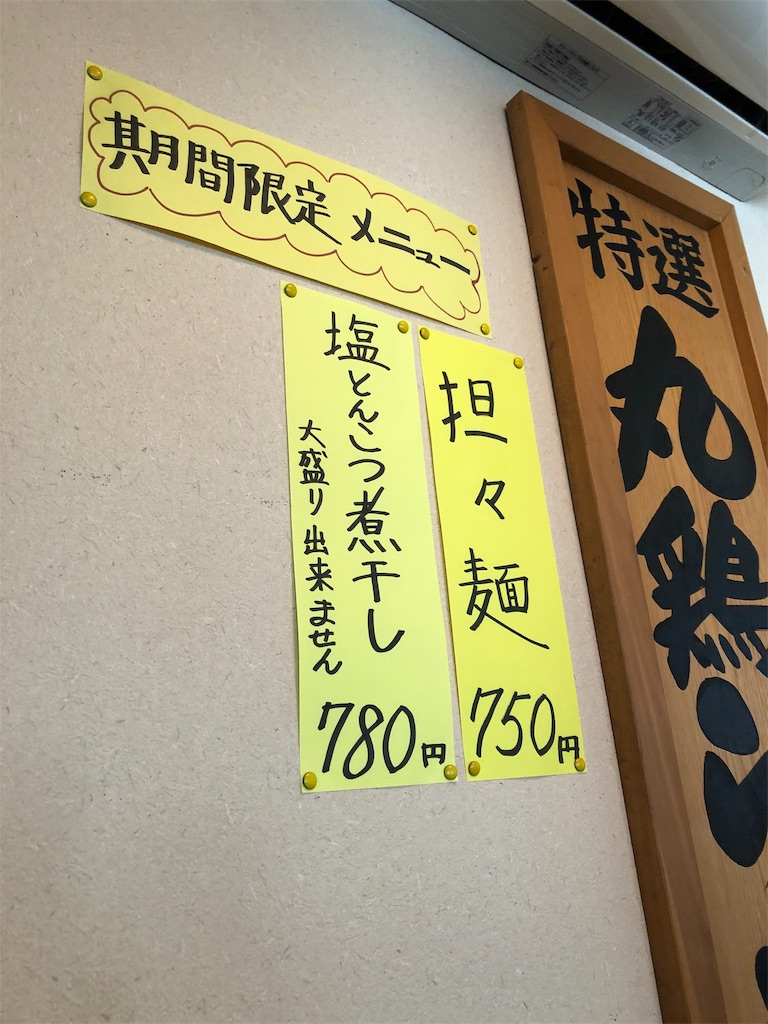 期間限定 メニュー
担々麺
750円
塩とんこつ煮干し
大盛り出来ません
780円
特選
丸鶏